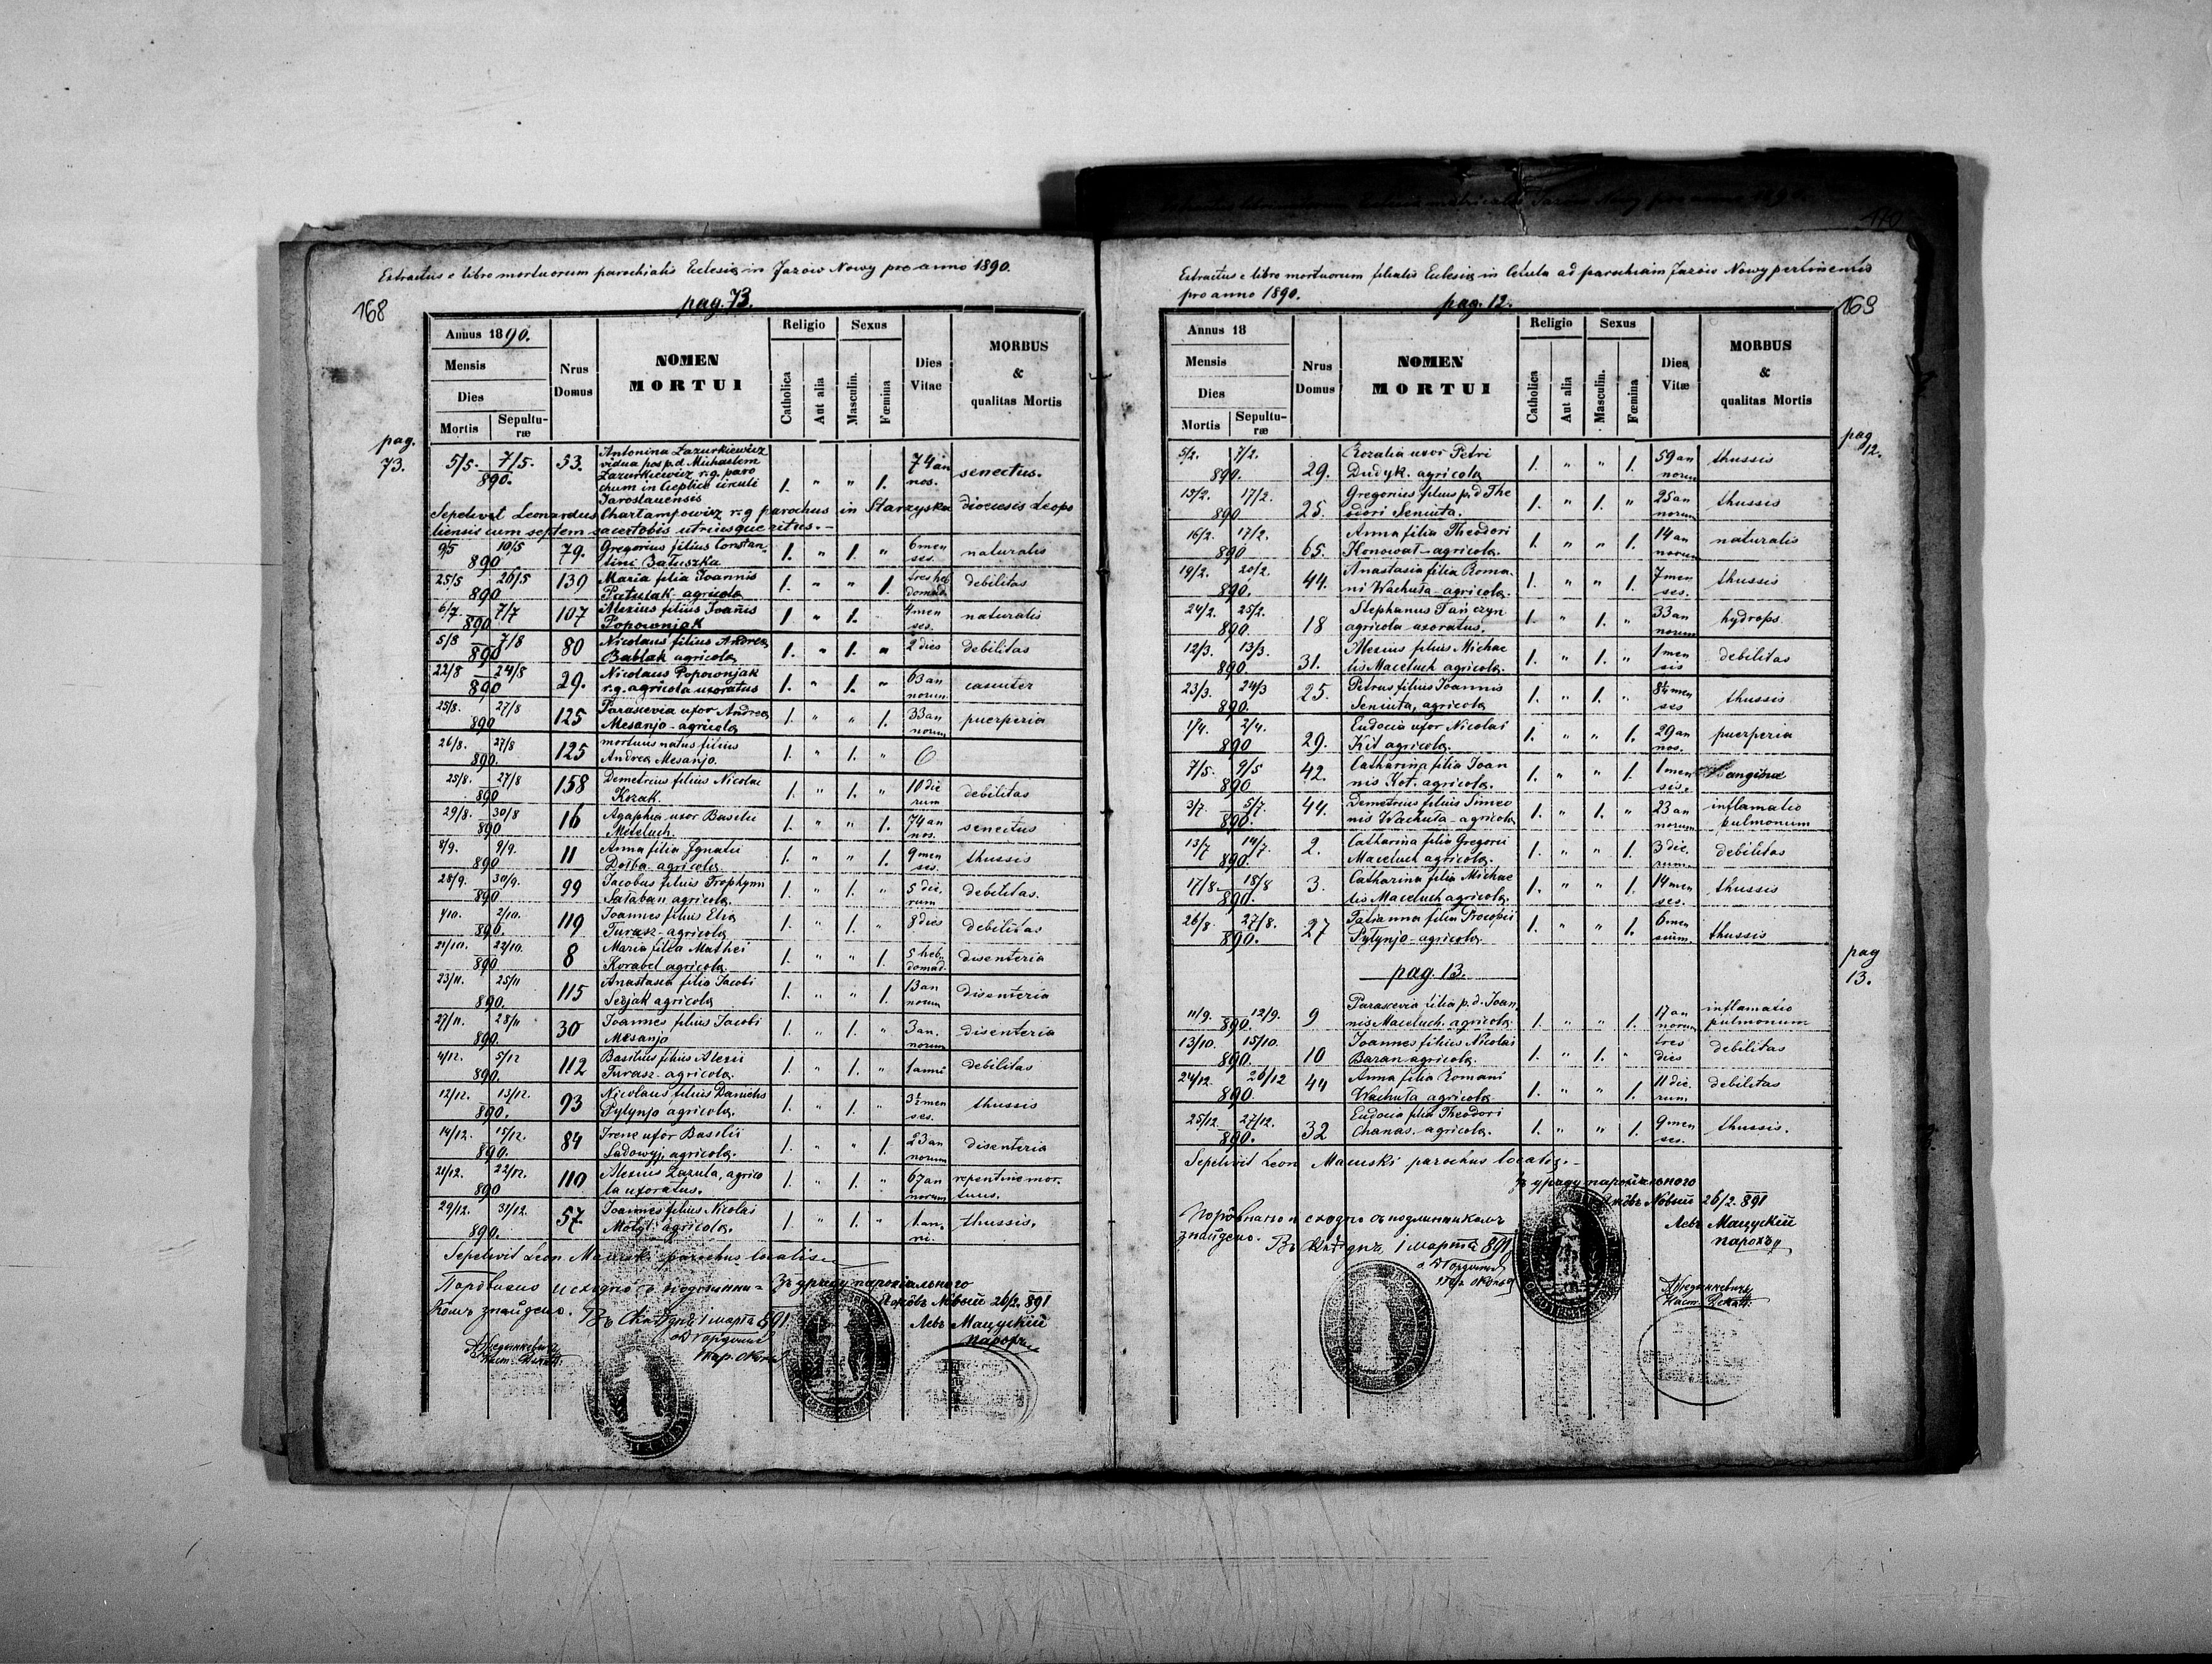 Extractus e libro mortuorum parochialis Eclesiæ in Jazów Nowy pro anno 1890.
168
pag. 73.
Annus 1890.
Mensis
Dies
Mortis
Sepulturæ
Nrus Domus
NOMEN MORTUI
Religio
Catholica
Aut alia
Sexus
Masculin.
Fœmina
Dies Vitae
MORBUS & qualitas Mortis
pag. 73.
5/5. 7/5. 890. 53. Antonina Zazurkiewicz vidua post p.d. Michaelem Zazurkiewicz r.g. parochum in Cieplice circuli Jaroslauensis 1. " " 1. 74 annos. senectus.
Sepelivit Leonardus Chartampowicz r.g parochus in Starzyska diocesis Leopoliensis cum septem sacertobis utriusque ritus.-
9/5 10/5 890 79. Gregorius filius Constantini Batuszka 1. " 1. " 6 menses. naturalis
25/5 26/5 890 139 Maria filia Joannis Patulak - agricolæ 1. " " 1. tres hebdomad. debilitas
6/7 7/7 890 107 Alexius filius Joanis Popownjak 1. " 1. 4 menses. naturalis
5/8 7/8 890 80 Nicolaus filius Andreæ Bablak agricolæ 1. " 1. " 2 dies debilitas
22/8 24/8 890 29. Nicolaus Popownjak r.g. agricola uxoratus 1. " 1. " 63 annorum
25/8. 27/8 890 125 Parascevia uxor Andreæ Mesanjo - agricolæ 1. " " 1. 33 annorum puerperia
26/8. 27/8 890. 125 mortuus natus filius Andreæ Mesanjo. 1. " 1. " 0
25/8. 27/8 890 158 Demetrius filius Nicolai Kozak. 1. " 1. " 10 dierum debilitas
29/8. 30/8 890 16 Agaphia uxor Basilii Meteluch. 1. " " 1. 74 annos. senectus
8/9. 9/9. 890 11 Anna filia Ignatii Dorba agricolæ 1. " " 1. 9 menses. thussis
28/9. 30/9. 890 99 Jacobus filius Trophymi Sataban agricolæ. 1. " 1. " 5 dierum debilitas.
2/10. 890. 119 Joannes filius Eliæ Turasz - agricolæ 1. " 1. " 8 dies debilitas
21/10. 22/10. 890 8 Maria filia Mathei Korabel agricolæ. 1. " " 1. 5 hebdomad. disenteria
23/11. 25/11 890. 115 Anastasia filia Jacobi Sedjak agricolæ 1. " " 1. 13 annorum disenteria
27/11. 28/11 890. 30 Joannes filius Jacobi Mesanjo 1. " 1. " 3 annorum disenteria
4/12. 5/12 890. 112 Basilius filius Alexii Turasz - agricolæ. 1. " 1. " 1 anni debilitas
12/12. 13/12. 890. 93 Nicolaus filius Danielis Pytynjo agricolæ. 1. " 1. " 3½ menses. thussis
14/12. 15/12. 890. 84 Irene uxor Basilii Sadowyj, agricolæ. 1. " " 1. 23 annorum disenteria
21/12. 22/12. 890 110 Alexius Zazula, agricola uxoratus. 1. " 1. " 67 annorum repentine mortuus.
29/12. 31/12. 890. 57 Joannes filius Nicolai agricolæ. 1. " 1. " 1 anni. thussis.
Sepelivit Leon Macuski parochus localis
Порôвнано и сходно з подлинникомъ знайдено. Въ 1 марта 891
Зъ уряду парохіального
Язôвъ Новый 26/2. 891
Левъ Мацускій
парохъ
Extractus e libro mortuorum filialis Eclesiæ in Cetula ad parochiam Jazów Nowy pertinentis
pro anno 1890.
pag. 12.
169
170
Annus 18
Mensis
Dies
Mortis
Sepulturæ
Nrus Domus
NOMEN MORTUI
Religio
Catholica
Aut alia
Sexus
Masculin.
Fœmina
Dies Vitæ
MORBUS & qualitas Mortis
pag 12.
5/2. 7/2. 890. 29. Rozalia uxor Petri Dudyk. agricolæ 1. " " 1. 59 annorum thussis
15/2. 17/2. 890 25. Gregorius filius p.d Theodori Seniuta. 1. " 1. " 25 annorum thussis
16/2. 17/2. 890 65. Anna filia Theodori Konowat - agricolæ. 1. " " 1. 14 annorum naturalis
19/2. 20/2. 890. 44. Anastasia filia Romani Wachuta - agricolæ. 1. " " 1. 7 menses. thussis
24/2. 25/2. 890. 18 Stephanus Tańczyn agricola uxoratus. 1. " 1. " 33 annorum hydrops
12/3. 13/3. 890 31. Alexius filius Michaelis Maceluch agricolæ. 1. " 1. " 1 mensis debilitas
23/3. 24/3 890. 25. Petrus filius Joannis Seniuta, agricolæ 1. " 1. " 8½ menses thussis
1/4. 2/4. 890 29. Eudocia uxor Nicolai Kit agricolæ. 1. " " 1. 29 annos. puerperia
7/5. 9/5 890 42. Catharina filia Joannis Kot. agricolæ. 1. " " 1. 1 mensis. anginæ
3/7. 5/7. 890. 44. Demetrius filius Simeonis Wachuta - agricolæ 1. " 1. " 23 annorum inflamatio pulmonum
13/7 14/7. 890. 2. Catharina filia Gregorii Maceluch agricolæ. 1. " " 1. 3 dierum. debilitas
17/8. 18/8 890. 3. Catharina filia Michaelis Maceluch agricolæ. 1. " " 1. 14 menses. thussis
26/8 27/8. 890. 27 Tatianna filia Procopii Pytynjo - agricolæ 1. " " 1. 6 mensium. thussis
pag. 13.
pag 13.
11/9. 12/9. 890. 9 Parascevia filia p.d. Joannis Maceluch. agricolæ. 1. " " 1. 17 annorum inflamatio pulmonum
13/10. 15/10. 890. 10 Joannes filius Nicolai Baran - agricolæ. 1. " 1. " tres dies debilitas
24/12. 26/12 890 44 Anna filia Romani Wachuta agricolæ 1. " " 1. 11 dierum. debilitas
25/12. 27/12. 890. 32 Eudocia filia Theodori Chanas. agricolæ. 1. " " 1. 9 menses. thussis.
Sepelivit Leon Macuski parochus localis.-
Зъ уряду парохіального
Язôвъ Новый 26/2. 891
Левъ Мацускій
парохъ
Порôвнано и сходно съ подлинникомъ
знайдено. Въ 1 марта 891